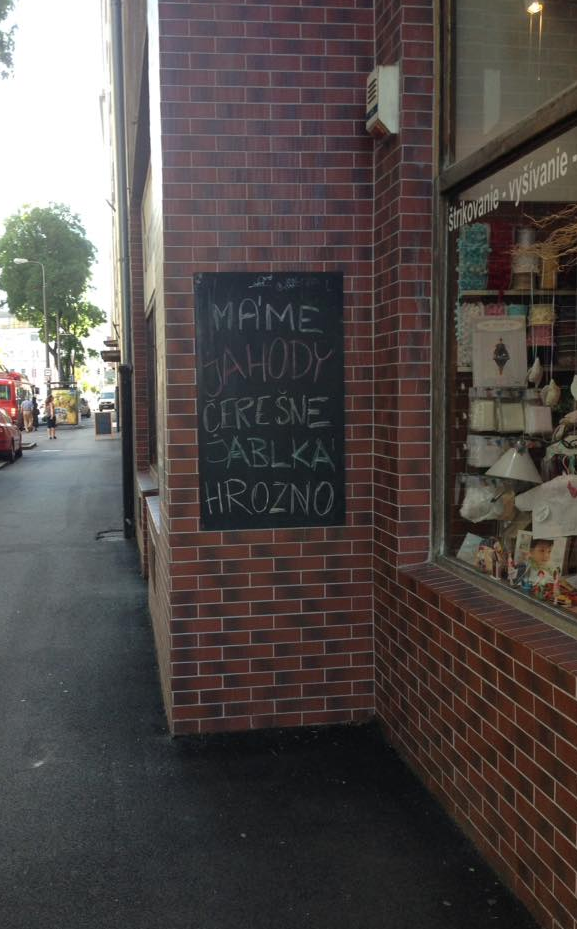 MÁME
JAHODY
ČEREŠNE
JABLKÁ
HROZNO
štrikovanie - vyšívanie -